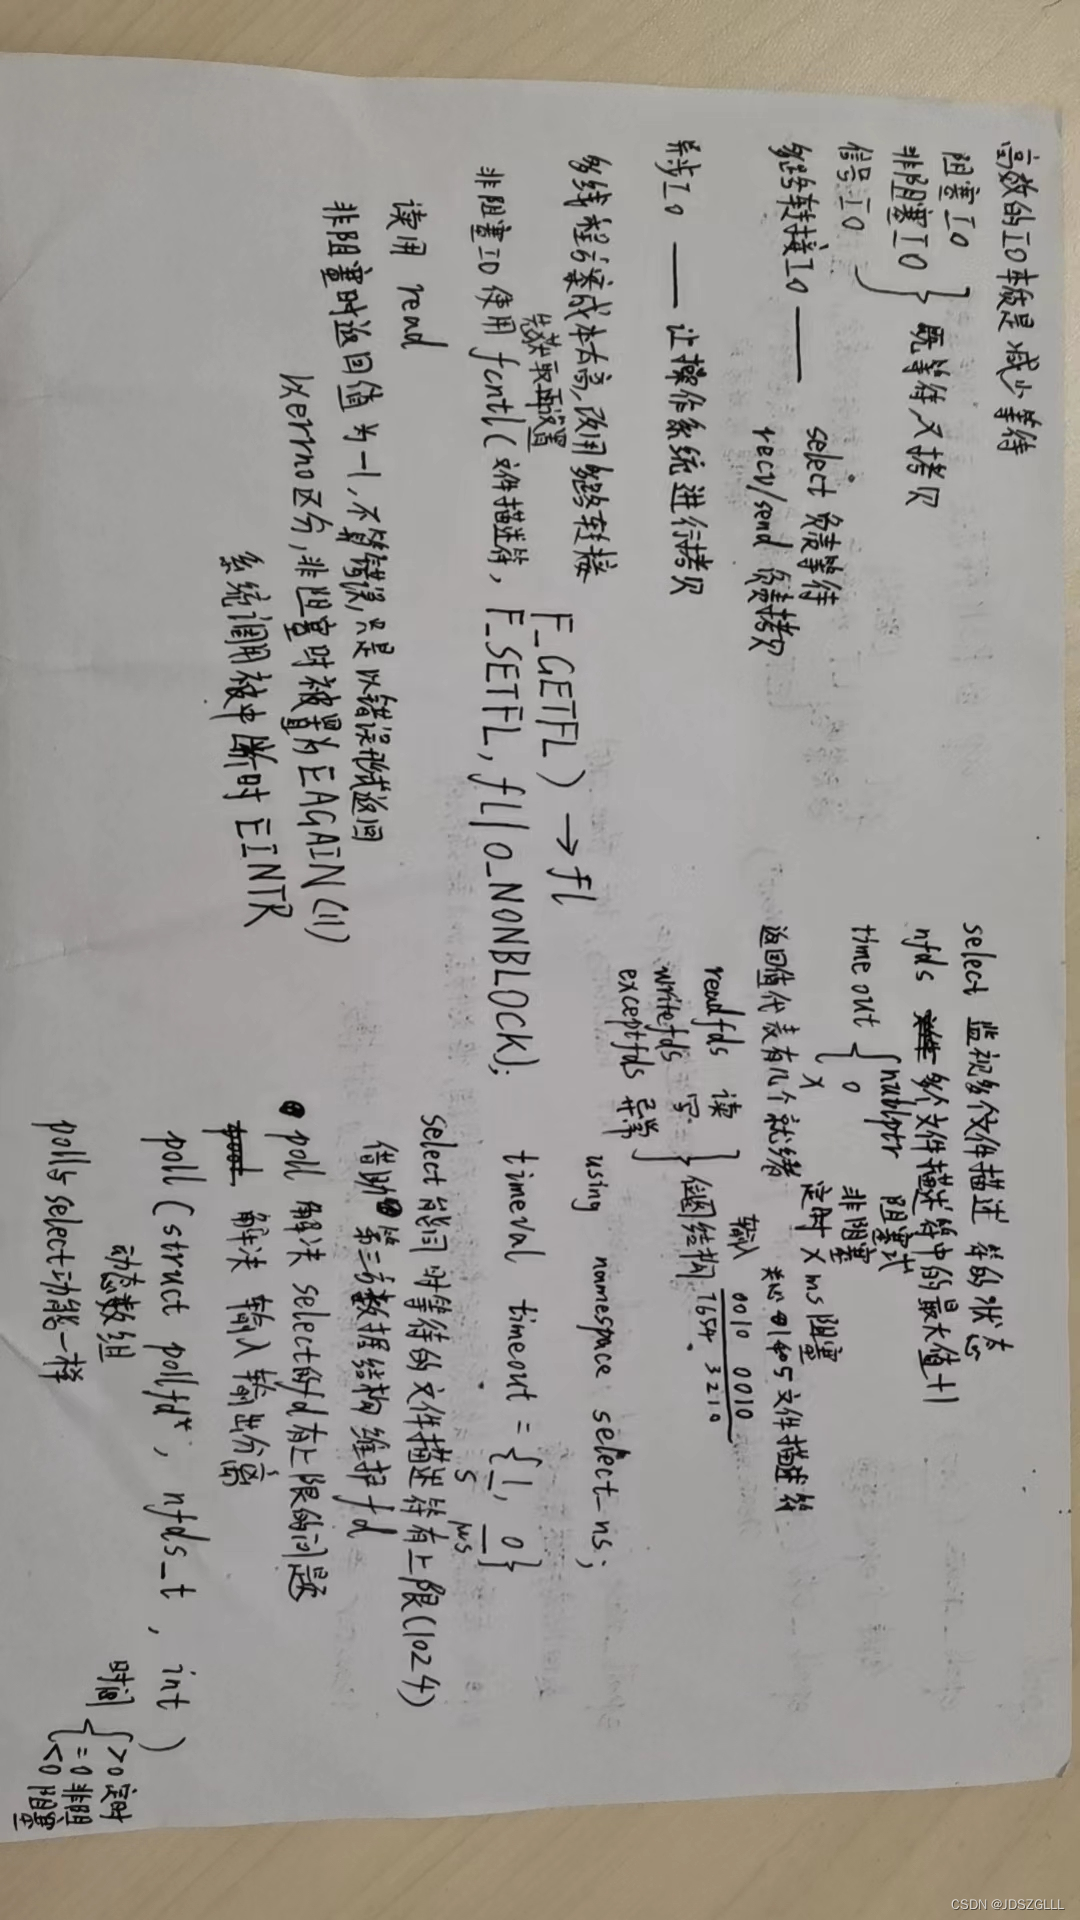 高效的IO本质是减少等待
阻塞IO
非阻塞IO
信号IO
既等待又拷贝
多路转接IO —— select 负责等待
recv/send 负责拷贝
异步IO —— 让操作系统进行拷贝
多线程方案成本太高,改用多路转接
先获取再设置
F_GETFL) → fl
非阻塞IO 使用 fcntl(文件描述符, F_SETFL, fl|O_NONBLOCK);
读用 read
非阻塞时返回值为-1,不算错误,只是以错误形式返回
以errno区分,非阻塞时被置为EAGAIN(11)
系统调用被中断时 EINTR
select 监视多个文件描述符的状态
nfds 多个文件描述符中的最大值+1
timeout { nullptr 阻塞式
0 非阻塞
X 定时 X ms阻塞
返回值代表有几个就绪
输入 0010 0010 关心1和5文件描述符
readfds 读
writefds 写
exceptfds 异常
} 位图结构 7654 3210
using namespace select_ns;
timeval timeout = {1, 0}
s μs
select能同时等待的文件描述符有上限(1024)
借助第三方数据结构维护fd
poll 解决 select的fd有上限的问题
解决 输入输出分离
poll(struct pollfd*, nfds_t, int)
动态数组
时间 { >0 定时
=0 非阻
<0 阻塞
poll与select功能一样
CSDN @JDSZGLLL